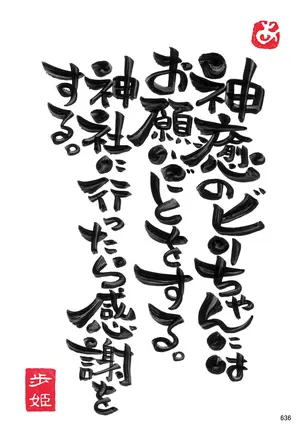 あ
神癒のどいちゃんには
お願いごとをする。
神社に行ったら感謝を
する。
歩姫
636